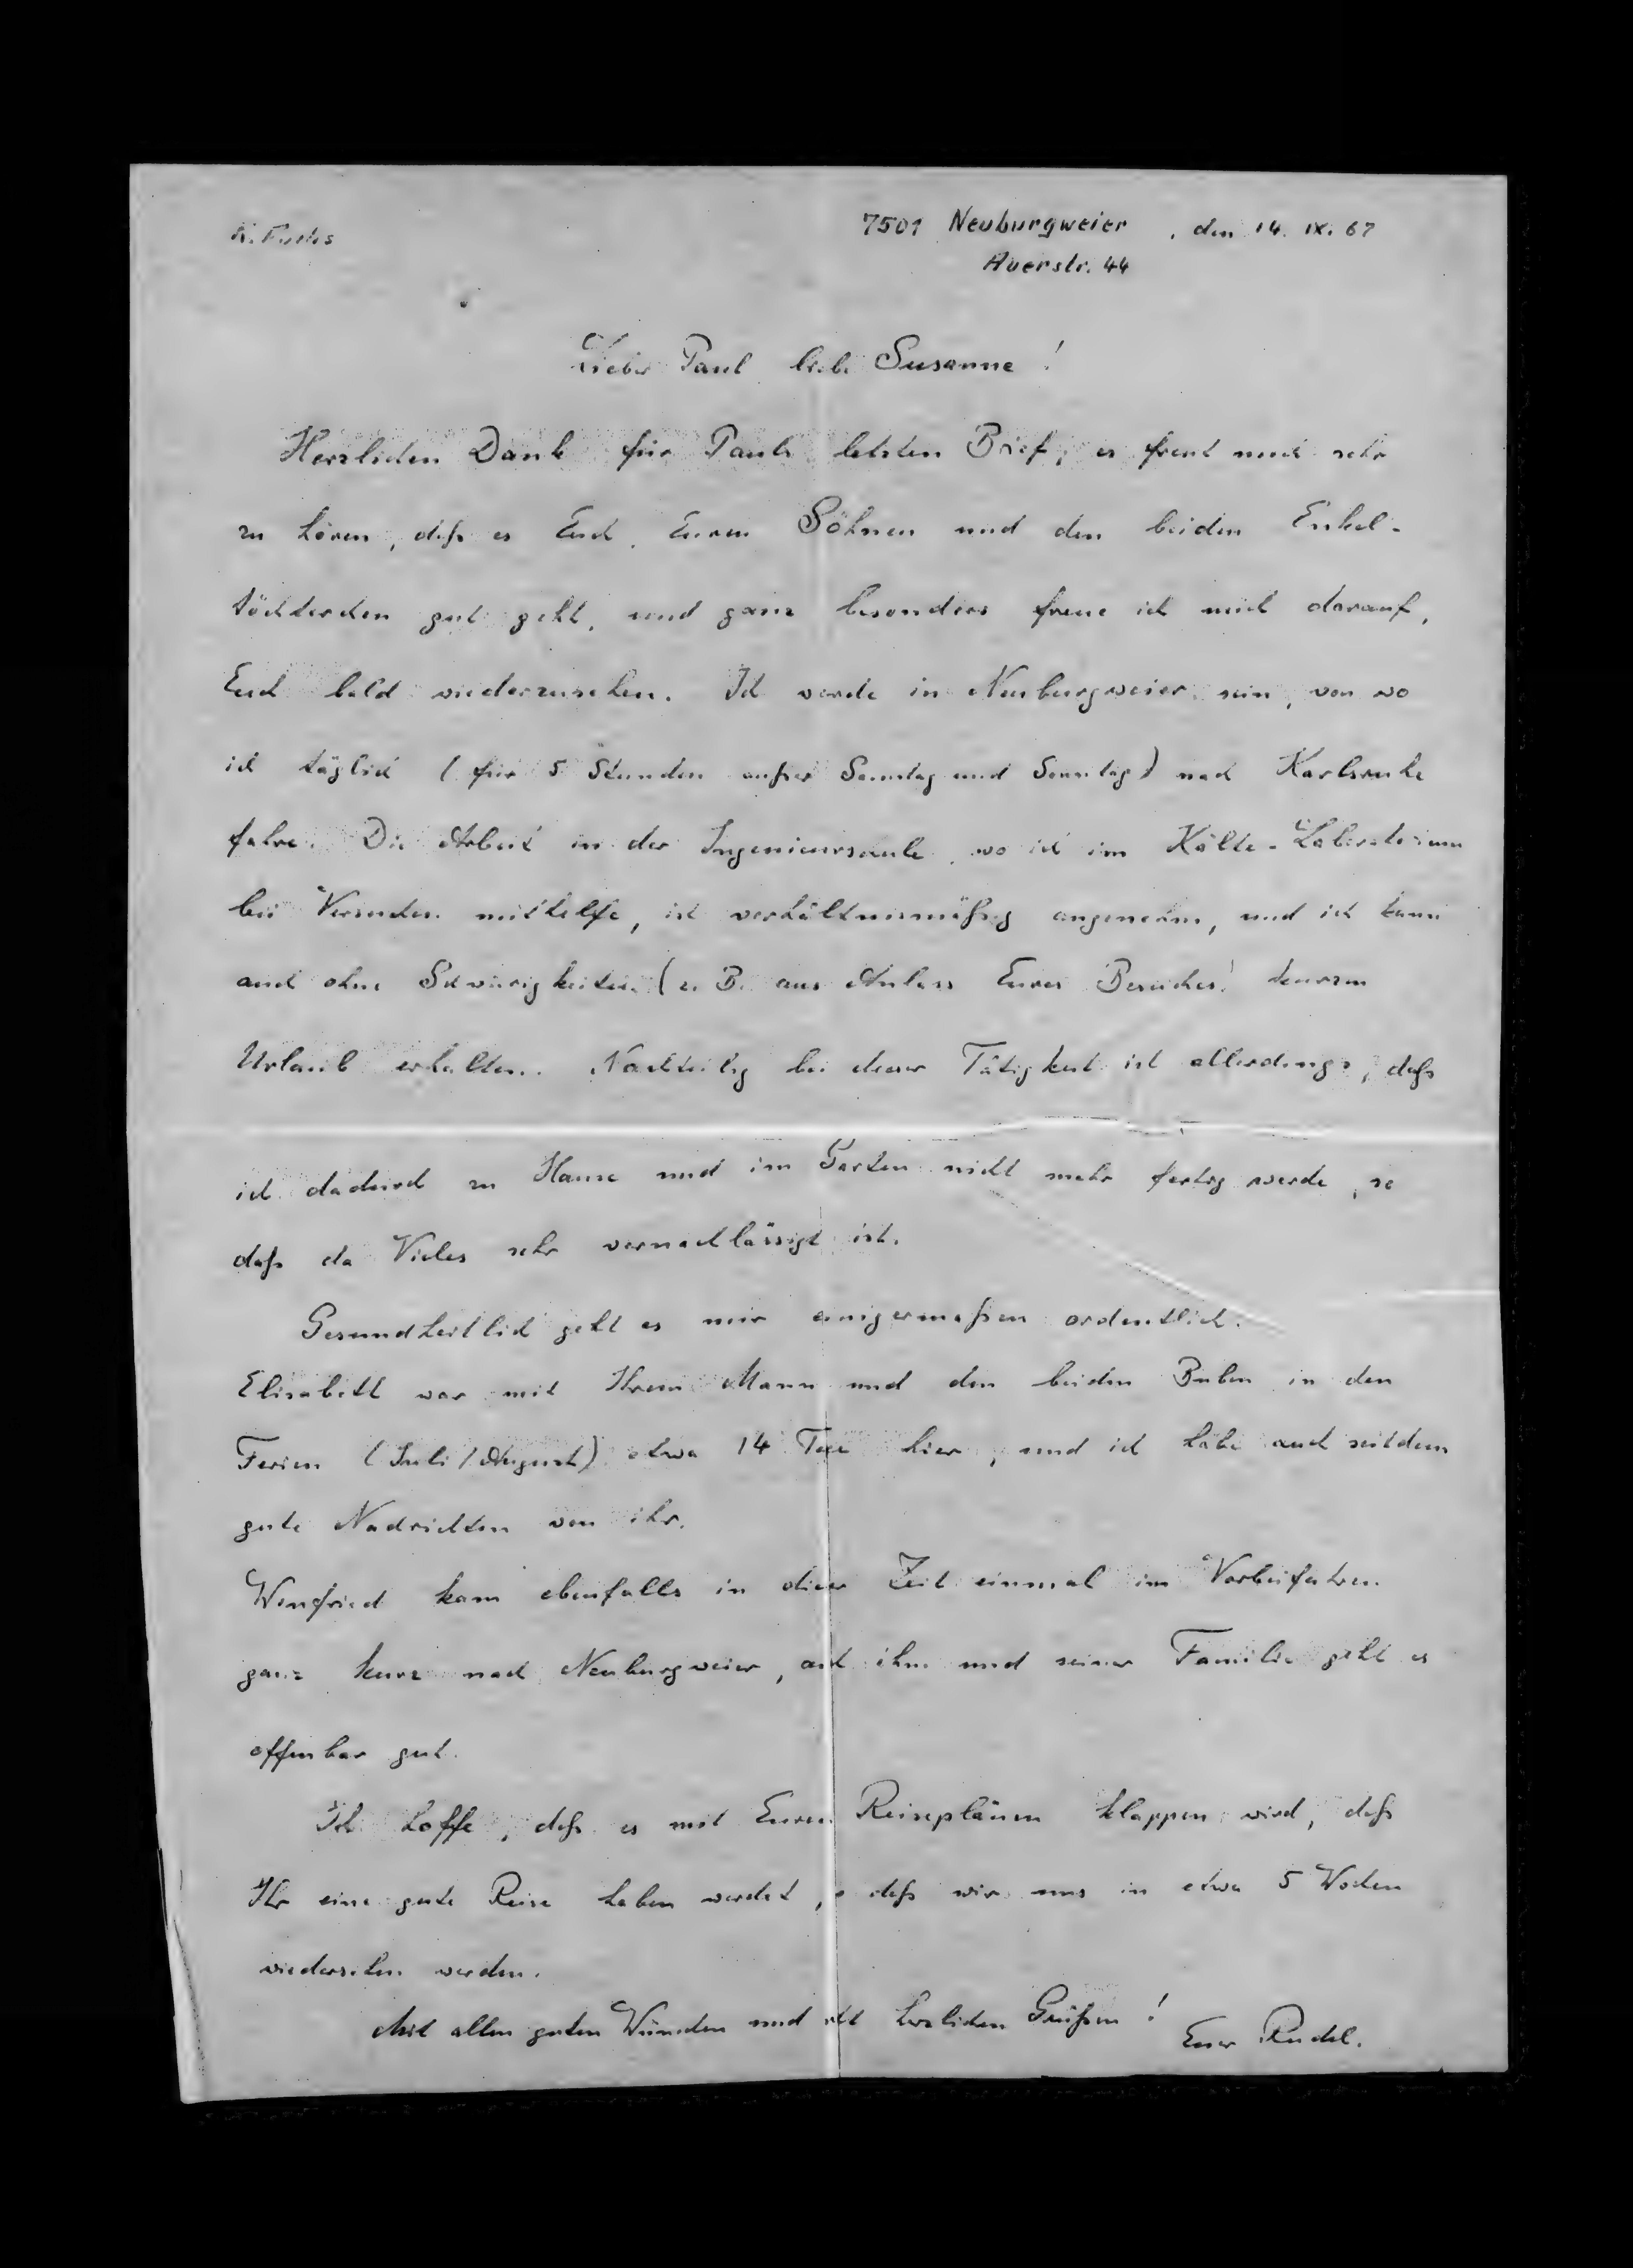 K. Fuchs
7501 Neuburgweier, den 14. IX. 67
Auerstr. 44
Lieber Paul, liebe Susanne!
Herzlichen Dank für Pauls letzten Brief; es freut mich sehr
zu hören, daß es Euch, Euren Söhnen und den beiden Enkel-
töchterchen gut geht, und ganz besonders freue ich mich darauf,
Euch bald wiederzusehen. Ich werde in Neuburgweier sein, von wo
ich täglich (für 5 Stunden außer Samstag und Sonntag) nach Karlsruhe
fahre. Die Arbeit in der Ingenieurschule, wo ich im Kälte-Laboratorium
bei Versuchen mithelfe, ist verhältnismäßig angenehm, und ich kann
auch ohne Schwierigkeiten (z. B. aus Anlass Eures Besuches!
Urlaub erhalten. Nachteilig bei dieser Tätigkeit ist allerdings, daß
ich dadurch zu Hause und im Garten nicht mehr fertig werde, so
daß da Vieles sehr vernachlässigt ist.
Gesundheitlich geht es mir einigermaßen ordentlich.
Elisabeth war mit Ihrem Mann und den beiden Buben in den
Ferien (Juli/August) etwa 14 Tage hier, und ich habe auch seitdem
gute Nachrichten von ihr.
Winfried kam ebenfalls in dieser Zeit einmal im Vorbeifahren
ganz kurz nach Neuburgweier, auch ihm und seiner Familie geht es
offenbar gut.
Ich hoffe, daß es mit Euren Reiseplänen klappen wird, daß
Ihr eine gute Reise haben werdet, daß wir uns in etwa 5 Wochen
wiedersehen werden.
Mit allen guten Wünschen und herzlichen Grüßen!
Euer Rudel.